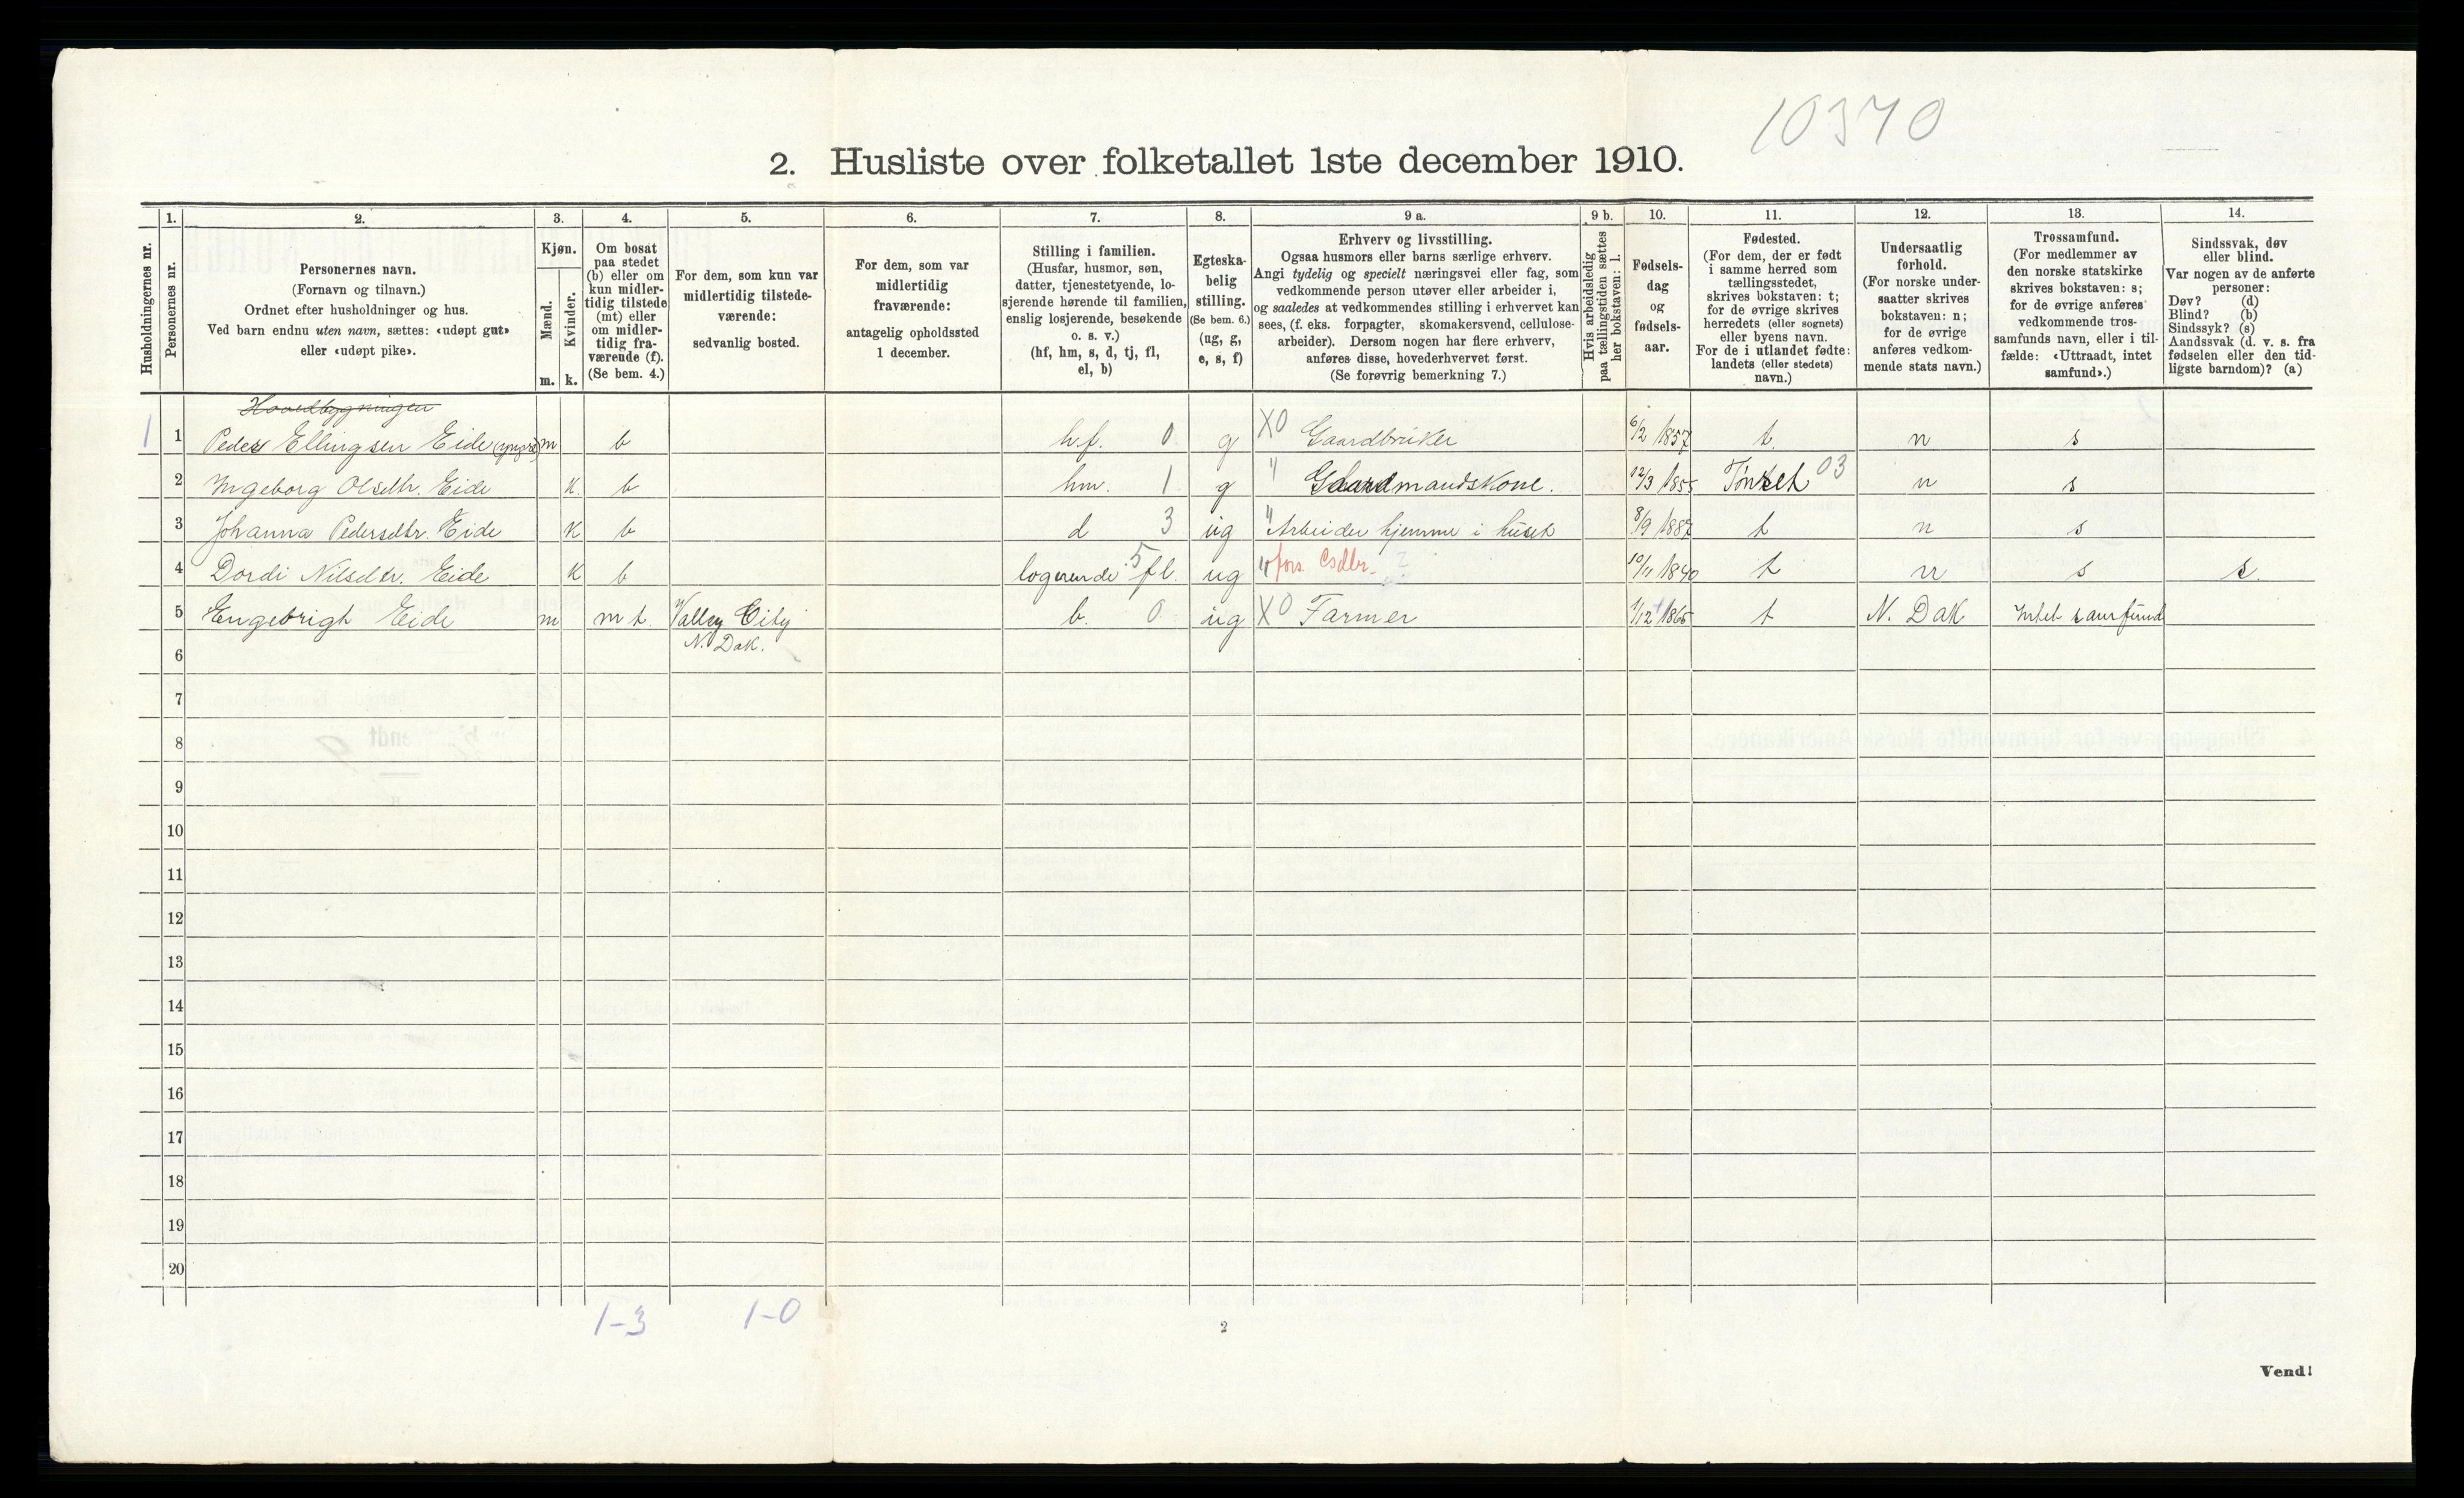 10370
2. Husliste over folketallet 1ste december 1910.
Husholdningernes nr.
1.
Personernes nr.
2.
Personernes navn.
(Fornavn og tilnavn.)
Ordnet efter husholdninger og hus.
Ved barn endnu uten navn, sættes: «udøpt gut»
eller «udøpt pike».
3.
Kjøn.
Mænd.
Kvinder.
m. k.
4.
Om bosat
paa stedet
(b) eller om
kun midler-
tidig tilstede
(mt) eller
om midler-
tidig fra-
værende (f).
(Se bem. 4.)
5.
For dem, som kun var
midlertidig tilstede-
værende:
sedvanlig bosted.
6.
For dem, som var
midlertidig
fraværende:
antagelig opholdssted
1 december.
7.
Stilling i familien.
(Husfar, husmor, søn,
datter, tjenestetyende, lo-
sjerende hørende til familien,
enslig losjerende, besøkende
o. s. v.)
(hf, hm, s, d, tj, fl,
el, b)
8.
Egteska-
belig
stilling.
(Se bem. 6.)
(ug, g,
e, s, f)
9 a.
Erhverv og livsstilling.
Ogsaa husmors eller barns særlige erhverv.
Angi tydelig og specielt næringsvei eller fag, som
vedkommende person utøver eller arbeider i,
og saaledes at vedkommendes stilling i erhvervet kan
sees, (f. eks. forpagter, skomakersvend, cellulose-
arbeider). Dersom nogen har flere erhverv,
anføres disse, hovederhvervet først.
(Se forøvrig bemerkning 7.)
9 b.
Hvis arbeidsledig
paa tællingstiden sættes
her bokstaven: l.
10.
Fødsels-
dag
og
fødsels-
aar.
11.
Fødested.
(For dem, der er født
i samme herred som
tællingsstedet,
skrives bokstaven: t;
for de øvrige skrives
herredets (eller sognets)
eller byens navn.
For de i utlandet fødte:
landets (eller stedets)
navn.)
12.
Undersaatlig
forhold.
(For norske under-
saatter skrives
bokstaven: n;
for de øvrige
anføres vedkom-
mende stats navn.)
13.
Trossamfund.
(For medlemmer av
den norske statskirke
skrives bokstaven: s;
for de øvrige anføres
vedkommende tros-
samfunds navn, eller i til-
fælde: «Uttraadt, intet
samfund».)
14.
Sindssvak, døv
eller blind.
Var nogen av de anførte
personer:
Døv? (d)
Blind? (b)
Sindssyk? (s)
Aandssvak (d. v. s. fra
fødselen eller den tid-
ligste barndom)? (a)
Hovedbygningen
1 1 Peder Ellingsen Eide (yngre) m b hf. 0 g X0 Gaardbruker 6/2 1857 t n s
2 Ingeborg Olsdtr. Eide K b hm. 1 g " Gaardmandskone. 12/3 1855 Tønset 03 n s
3 Johanna Pedersdtr. Eide K b d 3 ug " Arbeider hjemme i huset 8/9 1887 t n s
4 Dordi Nilsdtr. Eide K b logerende 5 fl. ug " fors. 10/11 1840 t n s s.
5 Engebrigt Eide m mt Valley City b. 0 ug X0 Farmer 1/12 1865 t N. Dak Intet samfund
N. Dak.
6
7
8
9
10
11
12
13
14
15
16
17
18
19
20
1-3 1-0
2
Vend!